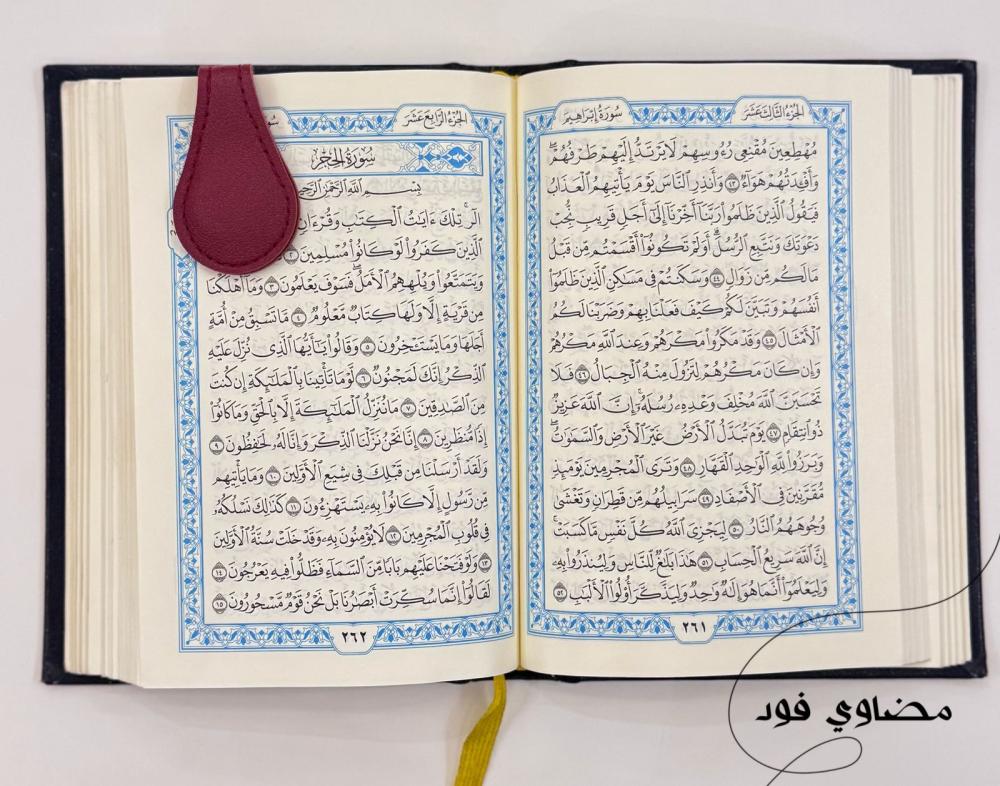 الجزء الثالث عشر
سورة إبراهيم
مُهْطِعِينَ مُقْنِعِى رُءُوسِهِمْ لَا يَرْتَدُّ إِلَيْهِمْ طَرْفُهُمْ ۖ
وَأَفْـِٔدَتُهُمْ هَوَآءٌ ٤٣ وَأَنذِرِ ٱلنَّاسَ يَوْمَ يَأْتِيهِمُ ٱلْعَذَابُ
فَيَقُولُ ٱلَّذِينَ ظَلَمُوا۟ رَبَّنَآ أَخِّرْنَآ إِلَىٰٓ أَجَلٍ قَرِيبٍ نُّجِبْ
دَعْوَتَكَ وَنَتَّبِعِ ٱلرُّسُلَ ۗ أَوَلَمْ تَكُونُوٓا۟ أَقْسَمْتُم مِّن قَبْلُ
مَا لَكُم مِّن زَوَالٍ ٤٤ وَسَكَنتُمْ فِى مَسَٰكِنِ ٱلَّذِينَ ظَلَمُوٓا۟
أَنفُسَهُمْ وَتَبَيَّنَ لَكُمْ كَيْفَ فَعَلْنَا بِهِمْ وَضَرَبْنَا لَكُمُ
ٱلْأَمْثَالَ ٤٥ وَقَدْ مَكَرُوا۟ مَكْرَهُمْ وَعِندَ ٱللَّهِ مَكْرُهُمْ
وَإِن كَانَ مَكْرُهُمْ لِتَزُولَ مِنْهُ ٱلْجِبَالُ ٤٦ فَلَا
تَحْسَبَنَّ ٱللَّهَ مُخْلِفَ وَعْدِهِۦ رُسُلَهُۥٓ ۗ إِنَّ ٱللَّهَ عَزِيزٌ
ذُو ٱنتِقَامٍ ٤٧ يَوْمَ تُبَدَّلُ ٱلْأَرْضُ غَيْرَ ٱلْأَرْضِ وَٱلسَّمَٰوَٰتُ ۖ
وَبَرَزُوا۟ لِلَّهِ ٱلْوَٰحِدِ ٱلْقَهَّارِ ٤٨ وَتَرَى ٱلْمُجْرِمِينَ يَوْمَئِذٍ
مُّقَرَّنِينَ فِى ٱلْأَصْفَادِ ٤٩ سَرَابِيلُهُم مِّن قَطِرَانٍ وَتَغْشَىٰ
وُجُوهَهُمُ ٱلنَّارُ ٥٠ لِيَجْزِىَ ٱللَّهُ كُلَّ نَفْسٍ مَّا كَسَبَتْ ۚ
إِنَّ ٱللَّهَ سَرِيعُ ٱلْحِسَابِ ٥١ هَٰذَا بَلَٰغٌ لِّلنَّاسِ وَلِيُنذَرُوا۟ بِهِۦ
وَلِيَعْلَمُوٓا۟ أَنَّمَا هُوَ إِلَٰهٌ وَٰحِدٌ وَلِيَذَّكَّرَ أُو۟لُوا۟ ٱلْأَلْبَٰبِ ٥٢
٢٦١
الجزء الرابع عشر
سورة الحجر
بِسْمِ ٱللَّهِ ٱلرَّحْمَٰنِ ٱلرَّحِيمِ
الٓر ۚ تِلْكَ ءَايَٰتُ ٱلْكِتَٰبِ وَقُرْءَانٍ
ٱلَّذِينَ كَفَرُوا۟ لَوْ كَانُوا۟ مُسْلِمِينَ ٢
وَيَتَمَتَّعُوا۟ وَيُلْهِهِمُ ٱلْأَمَلُ ۖ فَسَوْفَ يَعْلَمُونَ ٣ وَمَآ أَهْلَكْنَا
مِن قَرْيَةٍ إِلَّا وَلَهَا كِتَابٌ مَّعْلُومٌ ٤ مَّا تَسْبِقُ مِنْ أُمَّةٍ
أَجَلَهَا وَمَا يَسْتَـْٔخِرُونَ ٥ وَقَالُوا۟ يَٰٓأَيُّهَا ٱلَّذِى نُزِّلَ عَلَيْهِ
ٱلذِّكْرُ إِنَّكَ لَمَجْنُونٌ ٦ لَّوْ مَا تَأْتِينَا بِٱلْمَلَٰٓئِكَةِ إِن كُنتَ
مِنَ ٱلصَّٰدِقِينَ ٧ مَا نُنَزِّلُ ٱلْمَلَٰٓئِكَةَ إِلَّا بِٱلْحَقِّ وَمَا كَانُوٓا۟
إِذًا مُّنظَرِينَ ٨ إِنَّا نَحْنُ نَزَّلْنَا ٱلذِّكْرَ وَإِنَّا لَهُۥ لَحَٰفِظُونَ ٩
وَلَقَدْ أَرْسَلْنَا مِن قَبْلِكَ فِى شِيَعِ ٱلْأَوَّلِينَ ١٠ وَمَا يَأْتِيهِم
مِّن رَّسُولٍ إِلَّا كَانُوا۟ بِهِۦ يَسْتَهْزِءُونَ ١١ كَذَٰلِكَ نَسْلُكُهُۥ
فِى قُلُوبِ ٱلْمُجْرِمِينَ ١٢ لَا يُؤْمِنُونَ بِهِۦ ۖ وَقَدْ خَلَتْ سُنَّةُ ٱلْأَوَّلِينَ
١٣ وَلَوْ فَتَحْنَا عَلَيْهِم بَابًا مِّنَ ٱلسَّمَآءِ فَظَلُّوا۟ فِيهِ يَعْرُجُونَ ١٤
لَقَالُوٓا۟ إِنَّمَا سُكِّرَتْ أَبْصَٰرُنَا بَلْ نَحْنُ قَوْمٌ مَّسْحُورُونَ ١٥
٢٦٢
مضاوي فود